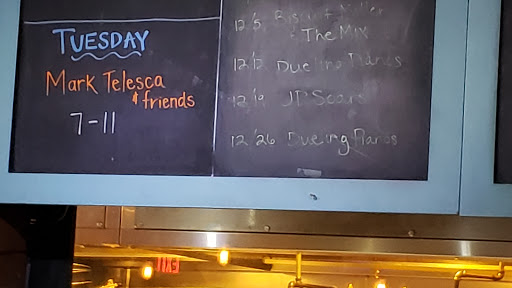 TUESDAY
Mark Telesca
& friends
7-11
12/5
& The Mix
12/12 Dueling Pianos
12/19 JP Soars
12/26 Dueling Pianos